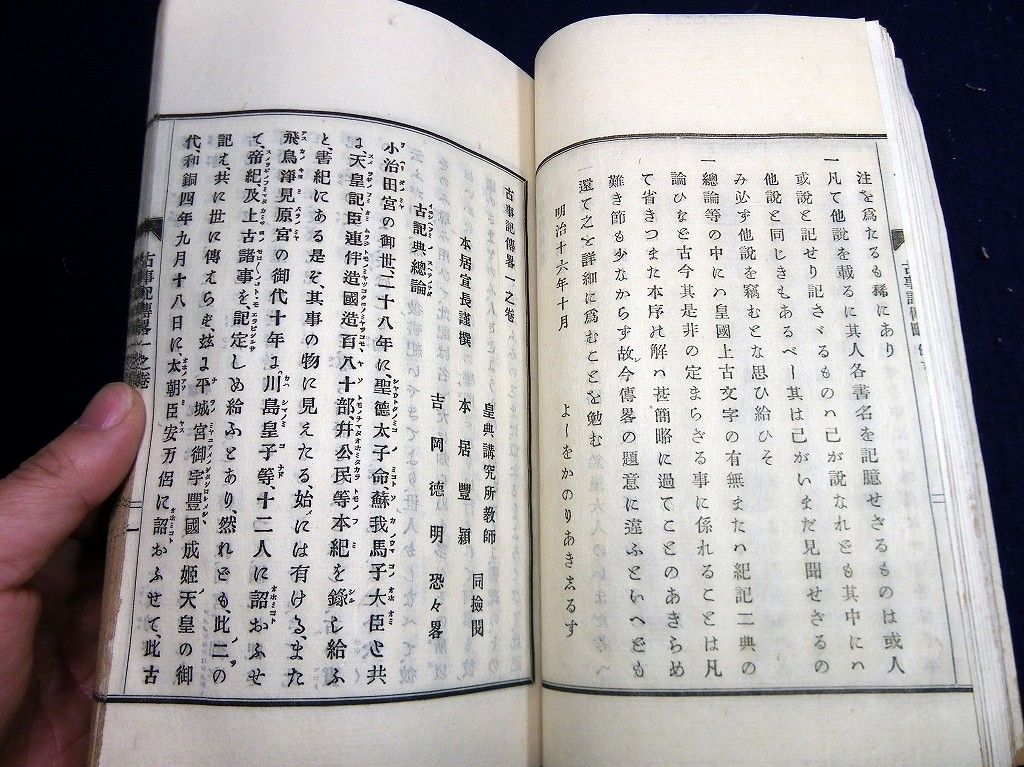 注を爲たるも稀にあり
一凡て他説を載るに其人各書名を記臆せざるものは或人
或説と記せり記さゞるものハ己が説なれども其中にハ
他説と同じきもあるべー其は己がいまだ見聞せざるの
み必ず他説を竊むとな思ひ給ひそ
一總論等の中にハ皇國上古文字の有無またハ紀記二典の
論ひなど古今其是非の定まらざる事に係れることは凡
て省きつまた本序の解ハ甚簡略に過てことのあきらめ
難き節も少なからず故今傳畧の題意に違ふといへども
一還て之を詳細に爲むことを勉む
明治十六年十月
よーをかのりあきゑるす
古事記傳畧一之卷
皇典講究所教師
本居宣長謹撰 本居豐穎 同撿閲
吉岡德明 恐々畧
古記典總論
小治田宮の御世、二十八年に、聖德太子命、蘇我馬子大臣と共
は、天皇記臣連伴造國造百八十部、幷公民等本紀を錄し給ふ
と、書紀にある是ぞ、其事の物に見えたる、始には有ける、また
飛鳥淨見原宮の御代十年は、川島皇子等、十二人に詔おふせ
て、帝紀及上古諸事を、記定しめ給ふとあり、然れども、此二の
記え、共に世に傳えらを、玆は平城宮御宇豐國成姬天皇の御
代、和銅四年九月十八日に、太朝臣安万侶に詔おふせて、此古
古事記傳畧一之卷
一